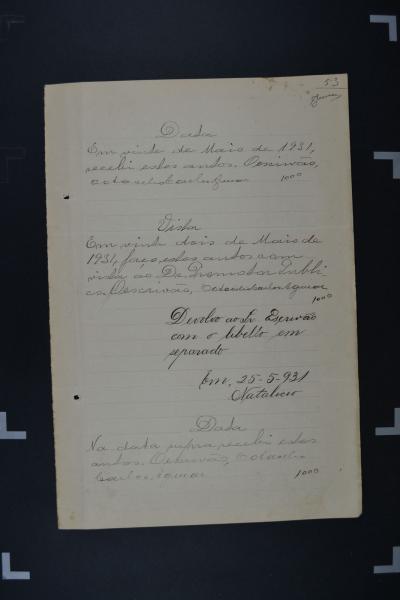 53
Data
Em vinte de Maio de 1931,
recebi estes autos. O escrivão,
1000
Vista
Em vinte dois de Maio de
1931, faço estes autos com
vista ao Dr. Promotor Publi
co. O escrivão,
1000
Devolvo ao Sr. Escrivão
com o libello em
separado
Em, 25-5-931
Natalicio
Data
Na data supra recebi estes
autos. O escrivão,
Carlos
1000